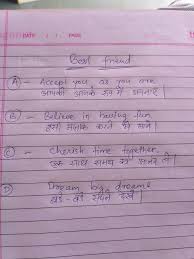 DATE
Best friend
A - Accept you as you are
आपको आपके रूप में अपनाएं
B - Believe in having fun
C - Cherish time together
एक साथ समय को
D Dream big dreams
बड़े-बड़े सपने देखें